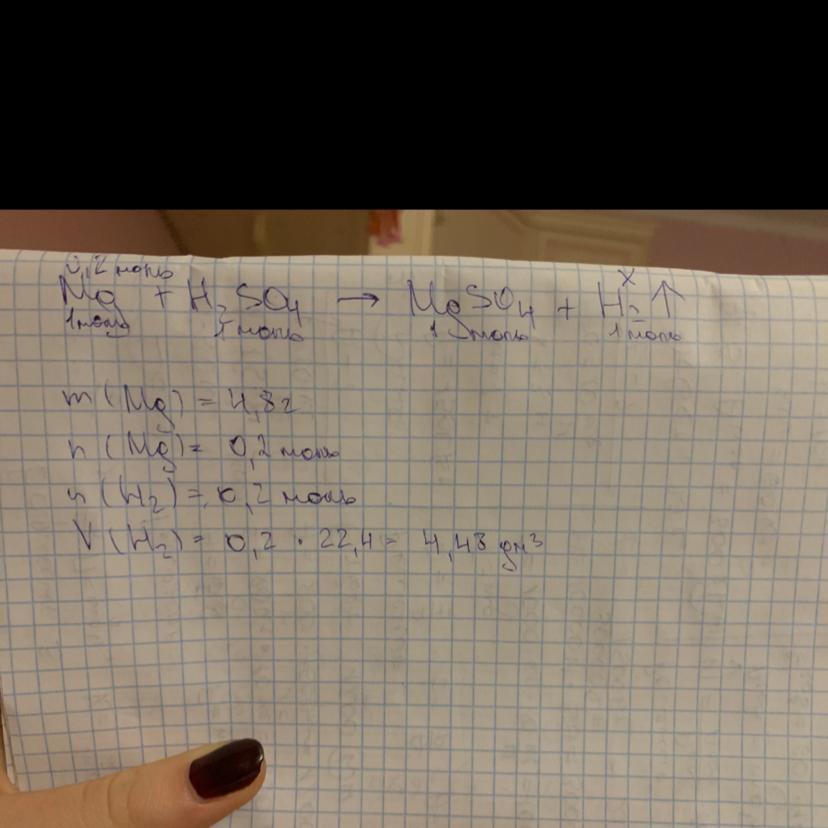 0,2 моль x
Mg + H₂SO₄ → MgSO₄ + H₂↑
1 моль 1 моль 1 моль 1 моль
m (Mg) = 4,8 г
n (Mg) = 0,2 моль
n (H₂) = 0,2 моль
V (H₂) = 0,2 · 22,4 = 4,48 дм³